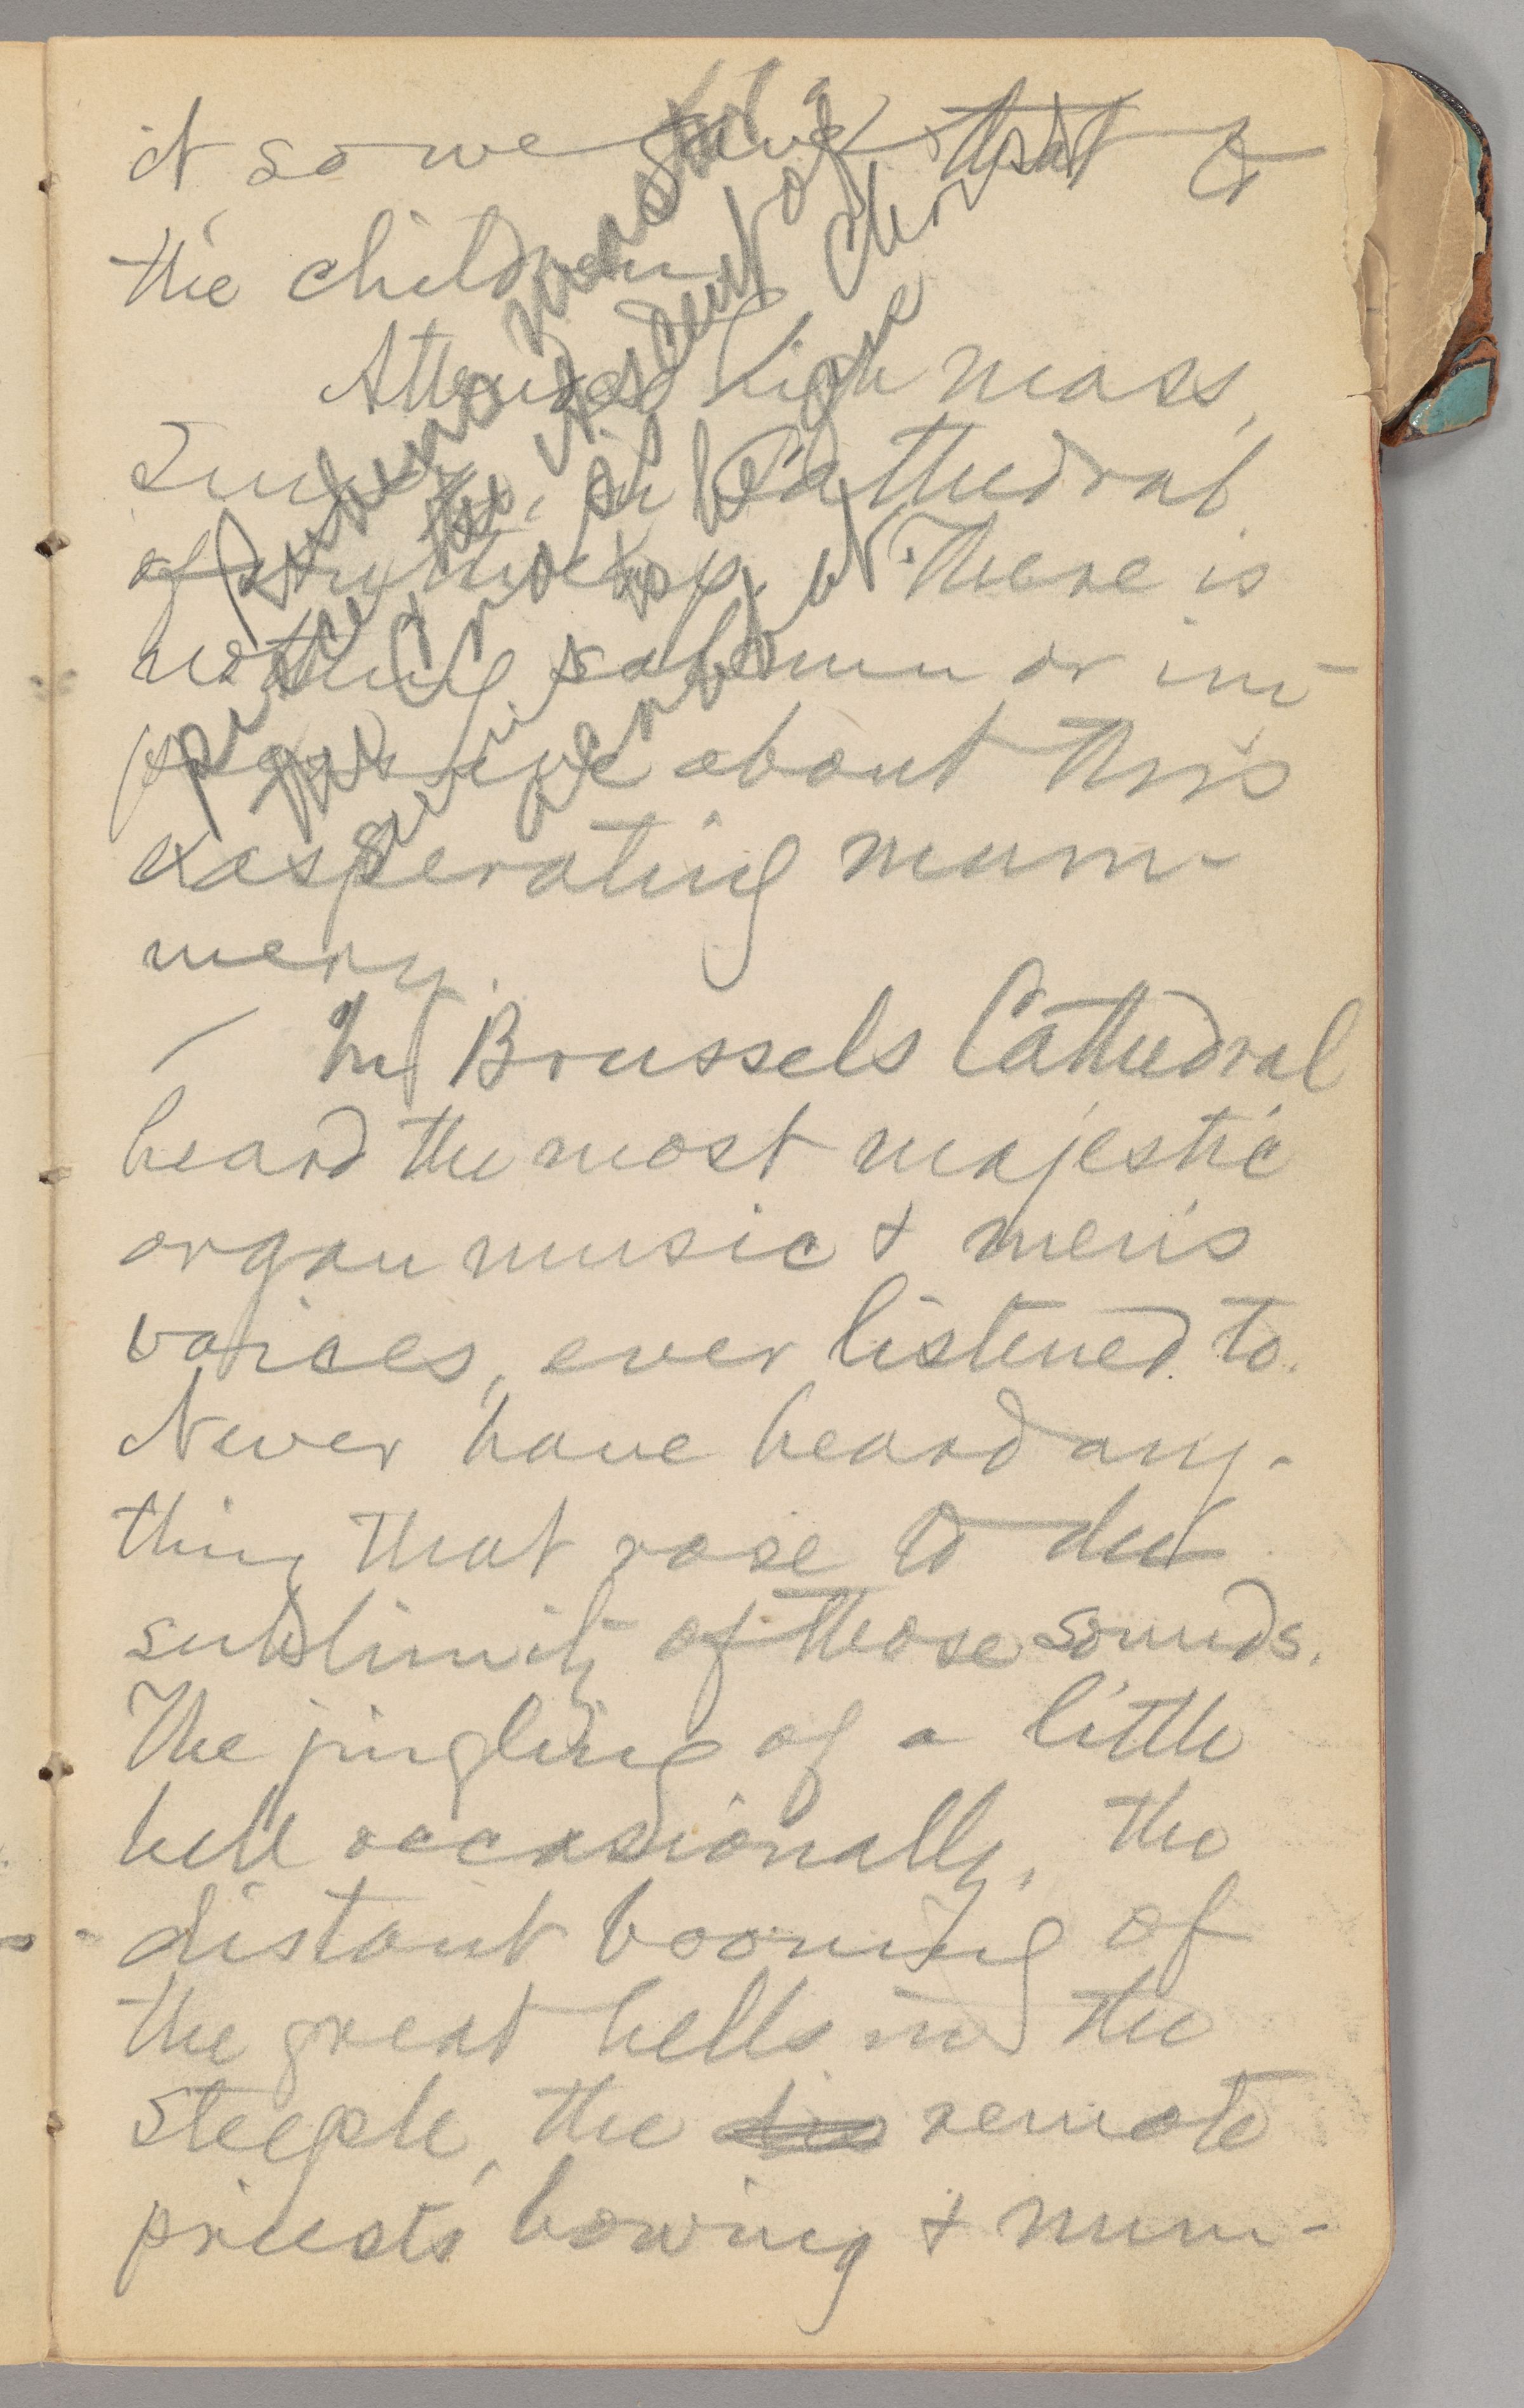 it so we that to
the children.
Attended high mass,
Sunday, in Cathedral
of Antwerp. There is
nothing solemn or im-
pressive about this
exasperating mum-
mery.
— In Brussels Cathedral
heard the most majestic
organ music & men's
voices, ever listened to.
Never have heard any-
thing that rose to the
sublimity of those sounds.
The jingling of a little
bell occasionally, the
distant booming of
the great bells in the
steeple, the remote
priests bowing & mum-
piece, the of Christ